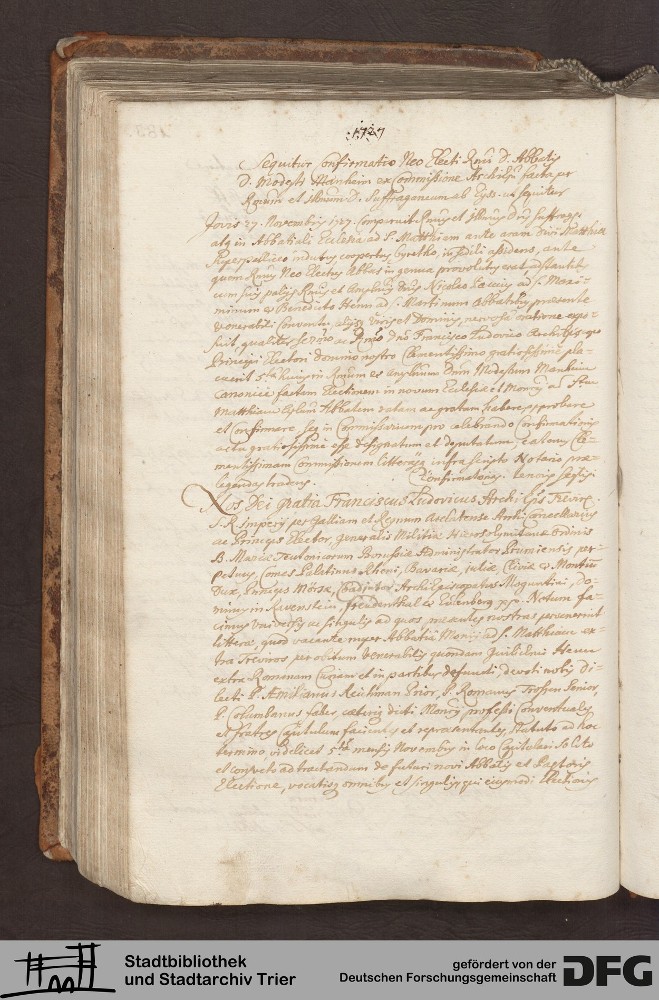 :1727
Sequitur Confirmatio Neo Electi Rmi D. Abbatis
D. Modesti Manheim ex Commissione Archiepi facta per
Rmum et Illmum D. Suffraganeum ab Eyss. ut sequitur
Jovis 27. Novembris 1727. Comparuit Rmus et Illmus Dnus Suffrag.
atq in Abbatiali Ecclesia ad S. Matthiam ante aram Divi Matthiae
Superpelliceo indutus, coopertus byretho, in sedili assidens, ante
quem Rmus Neo Electus Abbas in genua provolutus erat, adstantibus
cum suis palijs Rmis et Amplmis Dnis Nicolao Paccius ad S. Maxi-
minum & Benedicto Henn ad S. Martinum Abbatibus, praesente
venerabili Conventu, alijsq Viris et Dominis, nervosè oratione expo-
suit, qualiter Sermo ac Rmo Dno Francisco Ludovico Archiepo qe
Principi Electori domino nostro Clementissimo gratiosissimè pla-
cuerit 5ta hujus in Rmum et Amplmum Dnum Modestum Manheim
Canonicè factam Electionem in novum Ecclesiae et Monrij ad Stum
Matthiam Abbatem ratam ac gratam habere, approbare
et confirmare, seq in Commissarium pro celebrando Confirmationis
actu gratiosissimè esse designatum et deputatum, eatenus Cle-
mentissimam Commissionem litterasq infra scripto Notario prae-
legendas tradens. Confirmatoris. tenoris sequentis
Nos Dei gratia Franciscus Ludovicus Archi Eps Trevire.
S. R. Imperij per Galliam et Regnum Arelatense Archi Cancellarius
ac Princeps Elector, generalis Militiae Hierosolymitanae Ordinis
B. Mariae Teutonicorum Borussiae Administrator, Prumiensis per-
petuus, Comes Palatinus Rheni, Bavariae, Juliae, Cliviae & Montium
Dux, Princeps Mörsae, Coadjutor Archi Episcopatus Moguntini, Do-
minus in Ravenstein, Freudenthal & Eulenberg &c. Notum fa-
cimus Universis ac singulis ad quos praesentes nostrae pervenerint
litterae, quod vacante nuper Abbatiâ Monrij ad S. Matthiam ex-
tra Treviros per obitum Venerabilis quondam Guilielmi Henn
extra Romanam Curiam et in partibus defuncti, devoti nobis Di-
lecti P. AEmilianus Reichman Prior, P. Romanus Senior,
P. Columbanus caeteriq dicti Monrij professi Conventuales,
et fratres Capitulum facientes et repraesentantes, Statuto ad hoc
termino, videlicet 5ta mensis Novembris in loco Capitulari Solito
et consueto ad tractandum de futuri novi Abbatis et Pastoris
Electione, vocatisq omnibus et singulis, qui ejusmodi Electionis
Stadtbibliothek
und Stadtarchiv Trier
gefördert von der
Deutschen Forschungsgemeinschaft
DFG